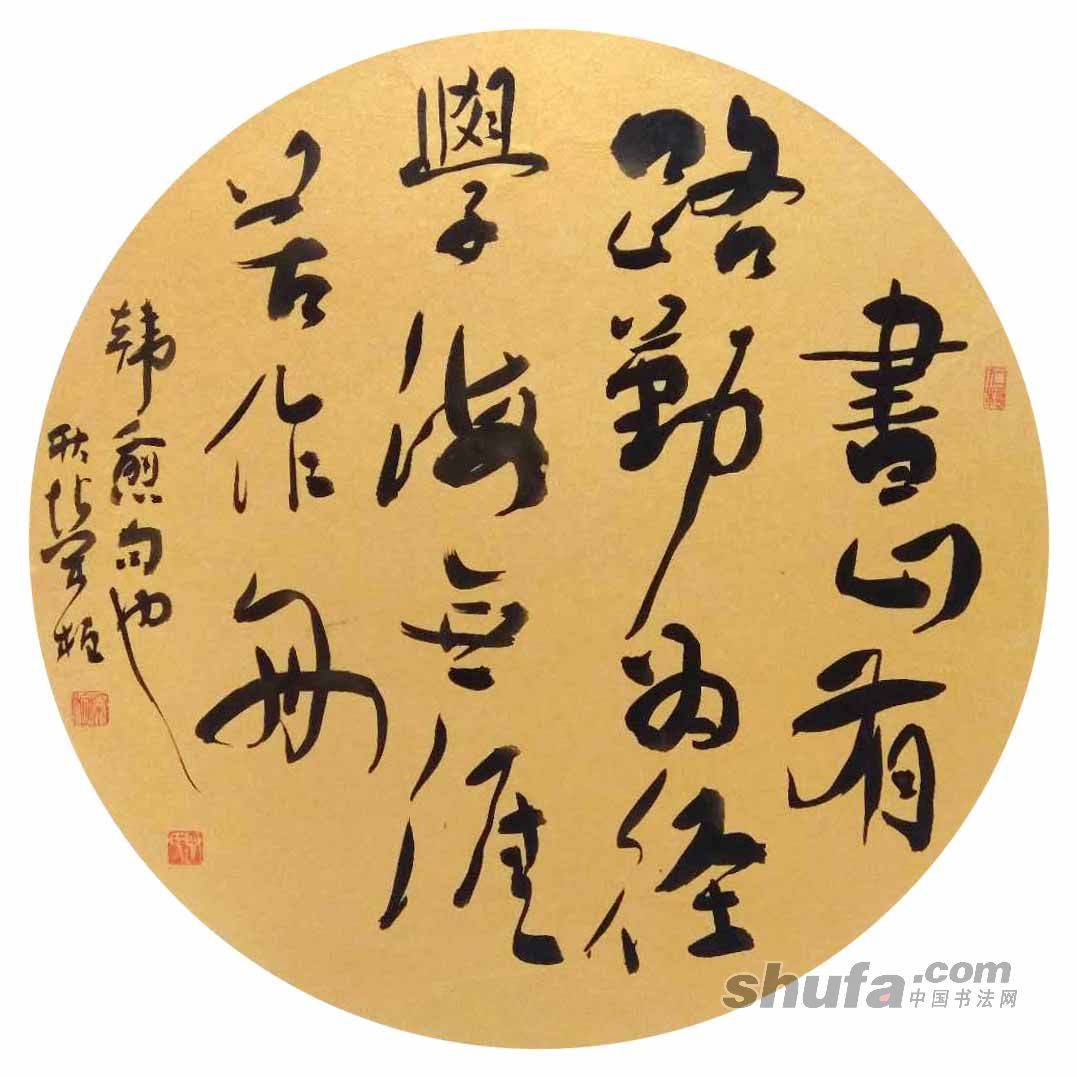 書山有
路勤为徑
學海無涯
苦作舟
韓愈句也
shufa.com
中国书法网